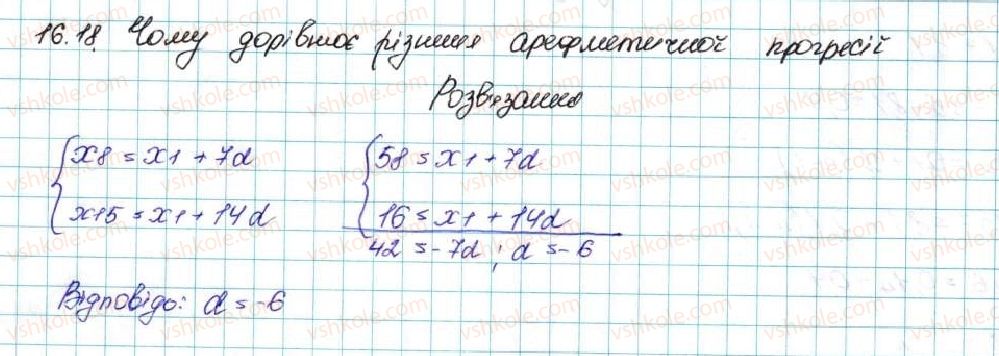 16.18 Чому дорівнює різниця арефметичної прогресії
Розв'язання
x8 = x1 + 7d
x15 = x1 + 14d
58 = x1 + 7d
16 = x1 + 14d
42 = -7d ; d = -6
Відповідь: d = -6